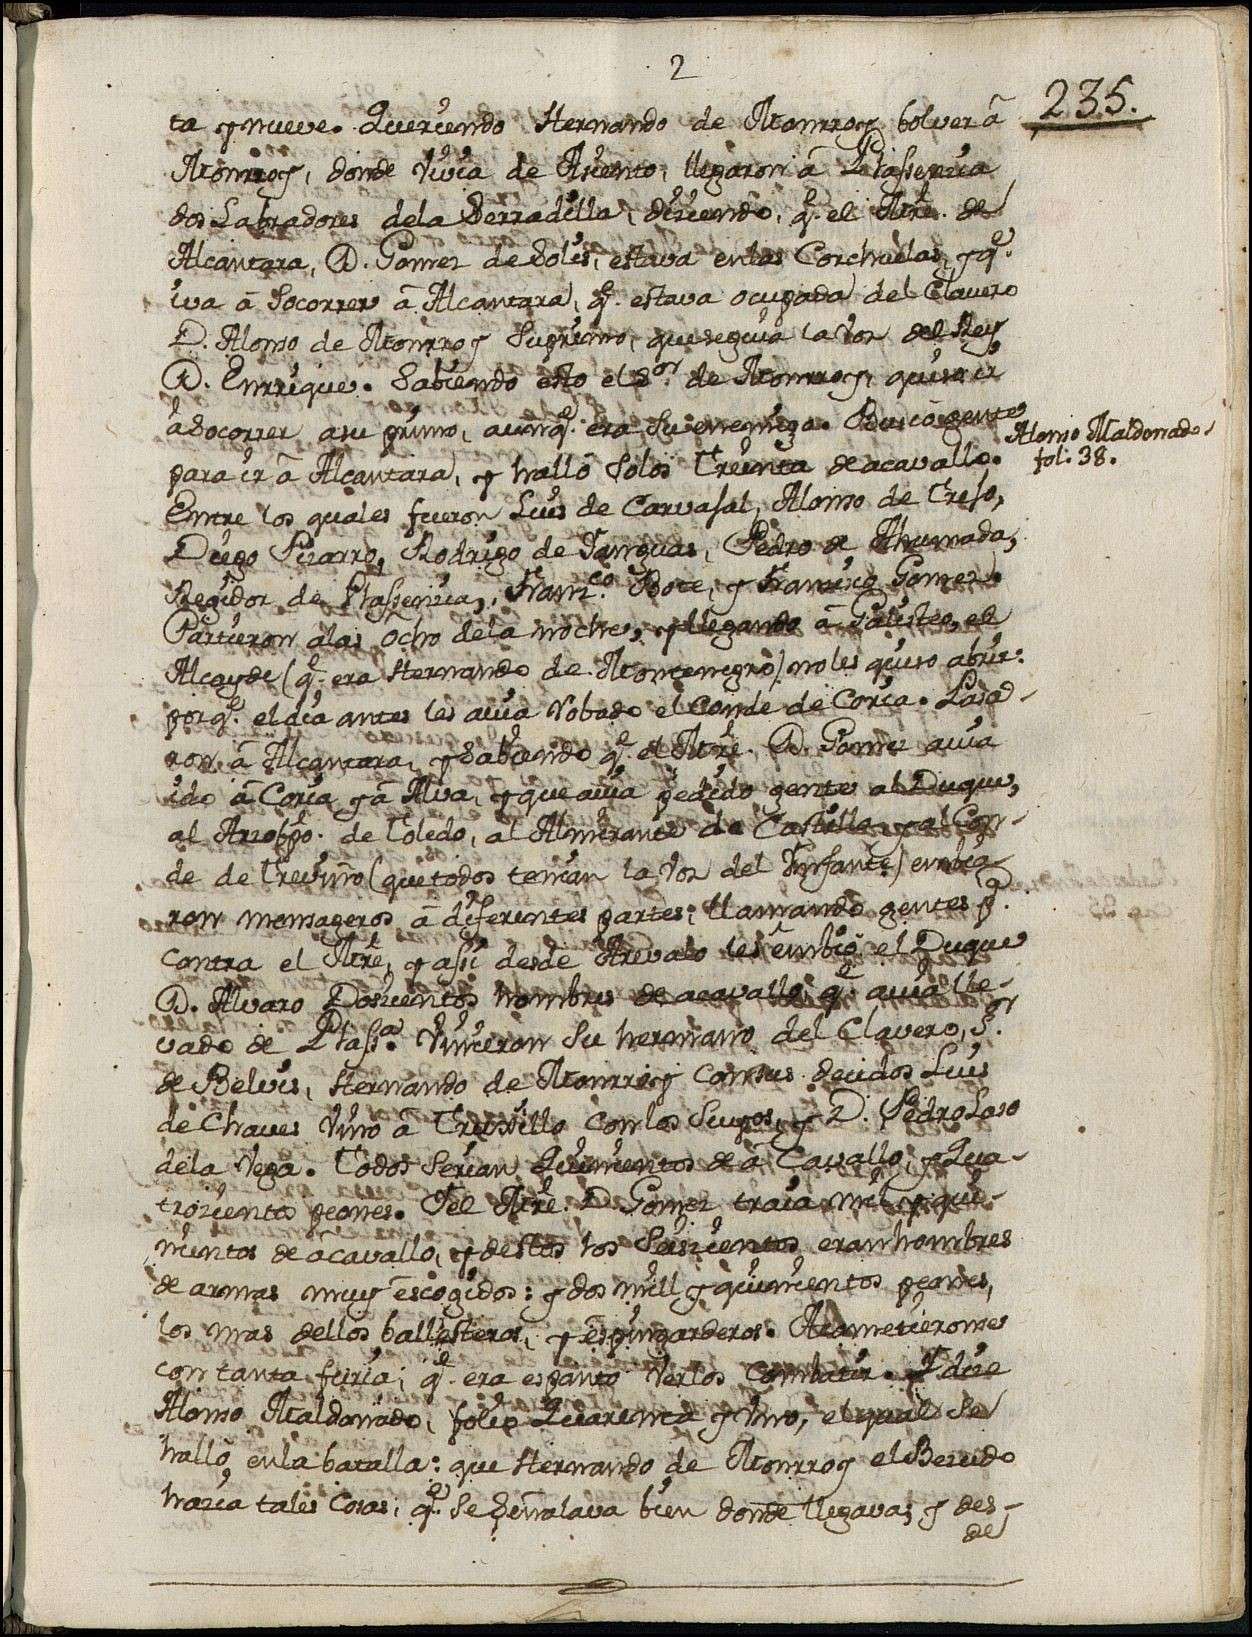 2
235.
ta y nueve. Queriendo Hernando de Monrroy bolver â
Monrroy, donde Vivia de Asiento, llegaron â Plassencia
dos Labradores dela Serradilla, diziendo, q.e el Mre. de
Alcantara, D. Gomez de Solis, estava en las Corchuelas, y q.e
iva â Socorrer â Alcantara, q.e estava ocupada del Clavero
D. Alonso de Monrroy Suprimo, que seguia la Voz del Rey
D. Enrrique. Sabiendo esto el S.or de Monrroy, quiso ir
â Socorrer a su primo, aunq.e era Su enemigo. Buscô gente
para ir â Alcantara, y hallô Solos Treinta de acavallo.
Alonso Maldonado,
fol. 38.
Entre los quales fueron Luis de Carvajal, Alonso de Trejo,
Diego Pizarro, Rodrigo de Yanguas, Pedro de Ahumada,
Regidor de Plassencia, Fran.co Bote, y Francisco Gomez.
Partieron alas ocho dela noche, y llegando â Galisteo, el
Alcayde (q.e era Hernando de Montenegro) no les quiso abrir:
porq.e el dia antes les avia Robado el Conde de Coria. Pasa-
ron â Alcantara, y Sabiendo q.e el Mre. D. Gomez avia
ido â Coria y â Alva, y que avia pedido gente al Duque,
al Arzobpo. de Toledo, al Almirante de Castilla y al Con-
de de Treviño (que todos tenian la Voz del Ynfante) embia-
ron mensageros â diferentes partes; llamando gentes p.a
contra el Mre, y assi desde Arevalo les embiô el Duque
D. Alvaro Dosientos hombres de acavallo q.e avia lle-
vado de Plass.a Vinieron Su hermano del Clavero, S.or
de Belvis, Hernando de Monrroy con sus deudos Luis
de Chaves Vino â Truxillo con los Suyos, y D. Pedro Laso
dela Vega. Todos Serian Quinientos de â Cavallo, y Qua-
trozientos peones. Y el Mre. D Gomez traia mil y qui-
nientos de âcavallo, y destos los Seiszientos eran hombres
de armas muy escogidos: y dos mill y quinientos peones,
los mas dellos ballesteros, y espingarderos. Acometieronse
con tanta furia, q.e era espanto Verlos Combatir. Y dize
Alonso Maldonado, folio Quarenta y Uno, el qual Se
hallô en la batalla: que Hernando de Monrroy el Bezudo
hazia tales Cosas, q.e Se Señalava bien donde llegava; y des-
de